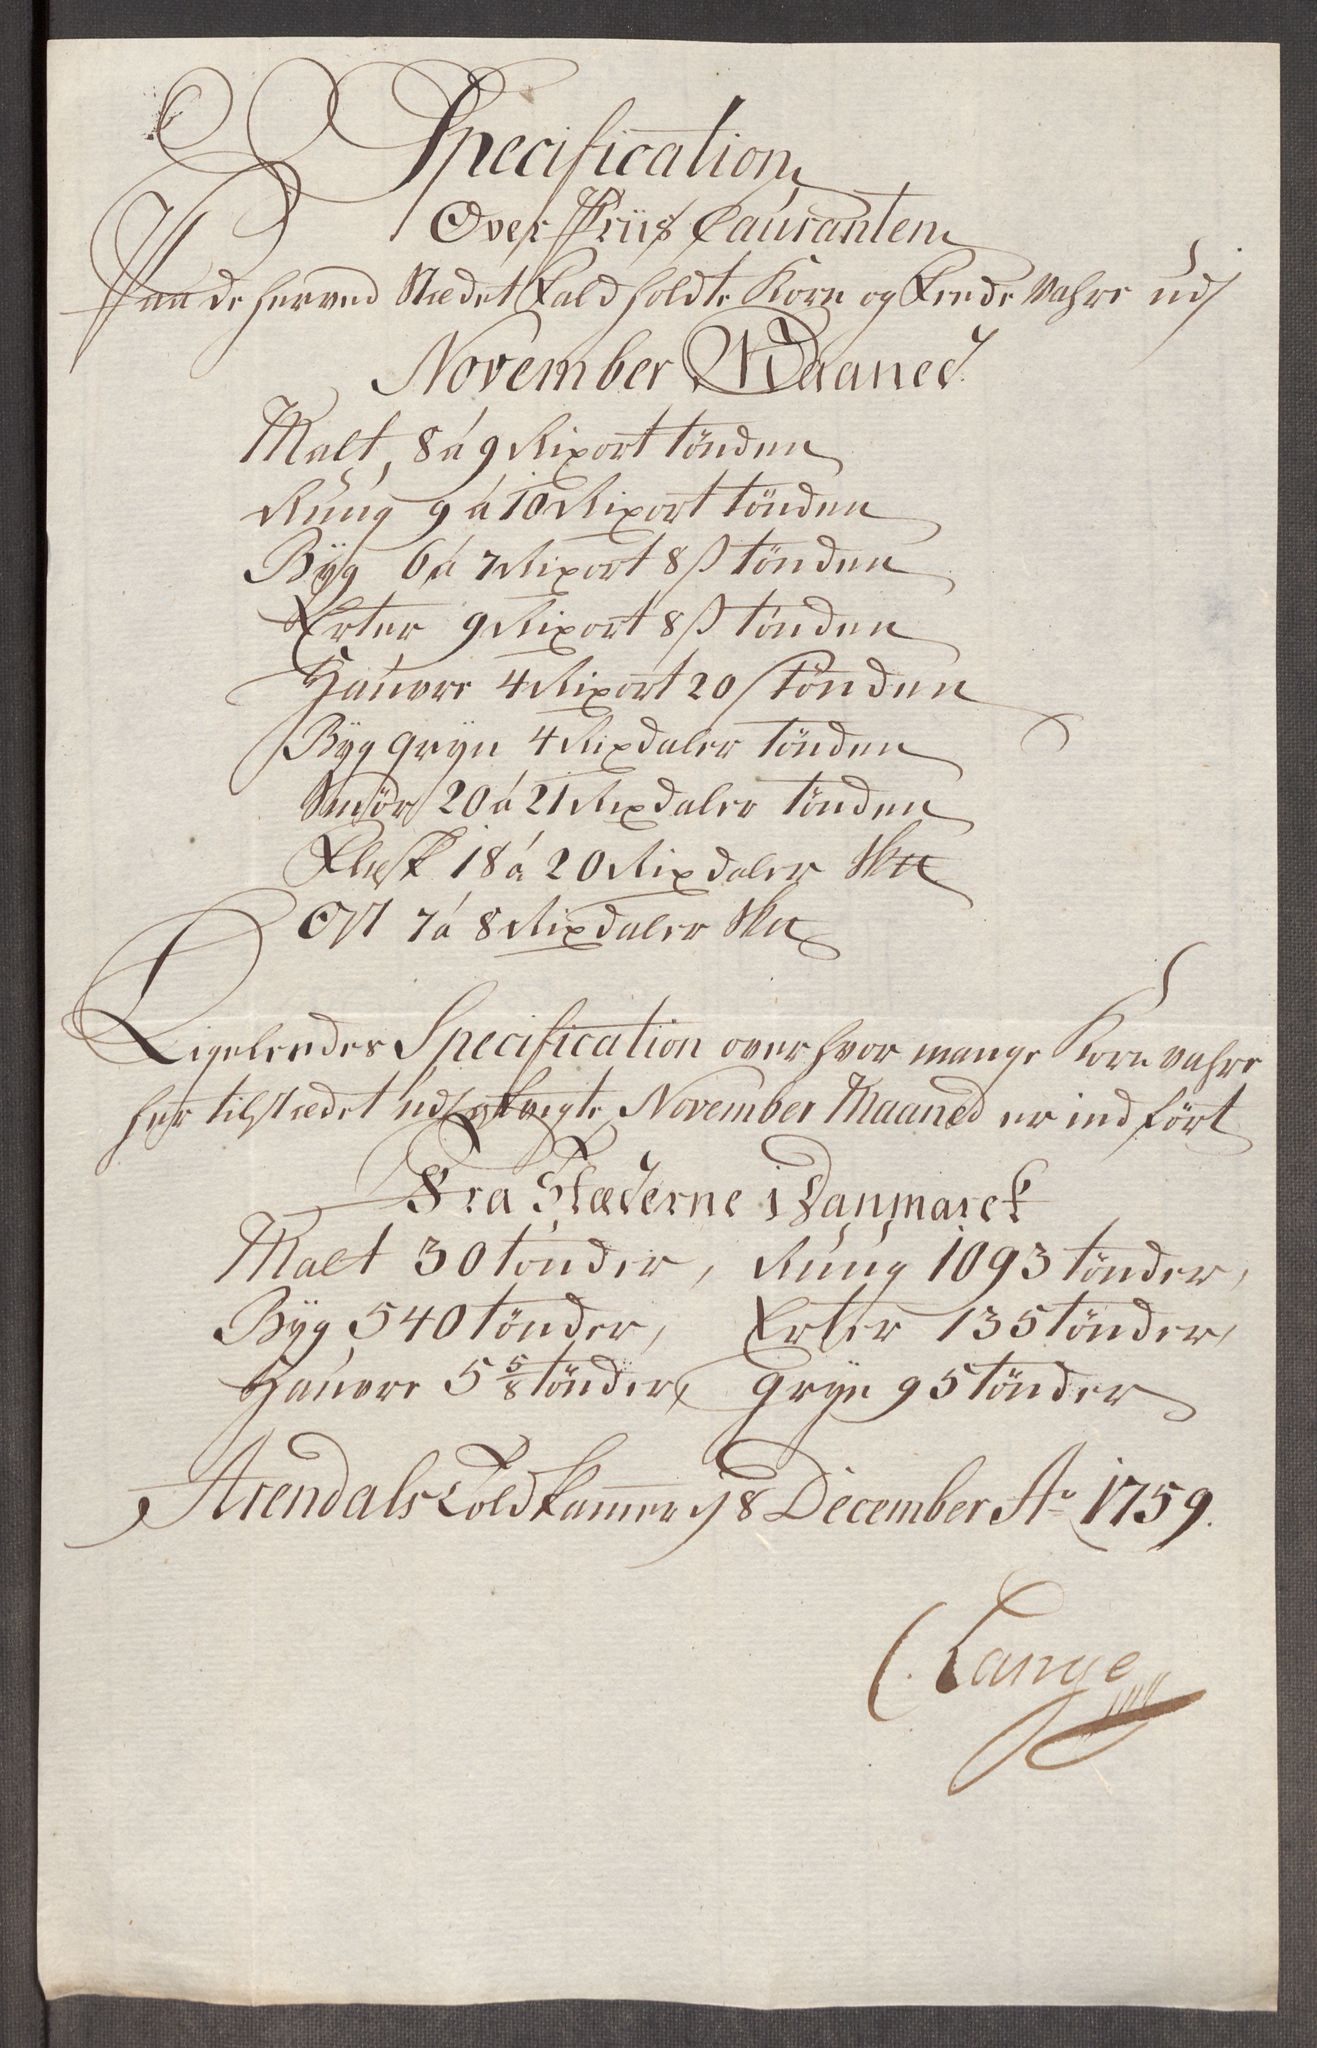 Specification
Over Priis Couranten
Paa de herved Stædet Fald holdte Korn og Feede Vahre udj
November Maaned
Malt, 8 á 9 Rixort tønden
Rúug 9 á 10 Rixort tønden
Byg 6 á 7 Rixort 8 ß tønden
Erter 9 Rixort 8 ß tønden
Haúvre 4 Rixort 20 ß tønden
Byg gryn 4 Rixdaler tønden
Smör 20 á 21 Rixdaler tønden
Flesk 18 á 20 Rixdaler
Ost 7 á 8 Rixdaler
Ligeleedes Specification over hvor mange Korn vahre
her til stædet udj November Maaned er indført
Fra Stæderne i Danmarck
Malt 30 tønder, Rúug 1093 tønder,
Byg 540 tønder, Erter 135 tønder,
Haúvre 5 5/8 tønder, gryn 95 tønder
Arendals Toldkammer d 8 December Ao 1759.
C. Lange